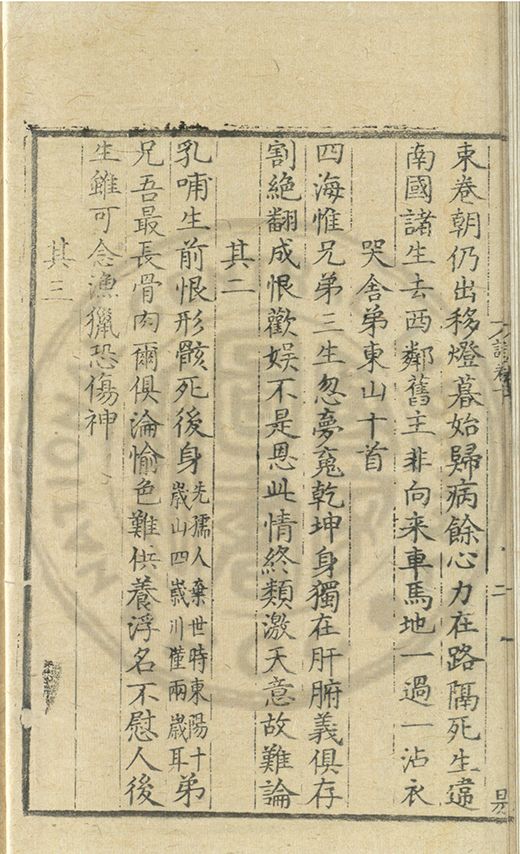 束卷朝仍出移燈暮始歸病餘心力在路隔死生違
南國諸生去西鄰舊主非向来車馬地一過一沾衣
哭舍弟東山十首
四海惟兄弟三生忽夢䰟乾坤身獨在肝腑義俱存
割絶翻成恨歡娱不是恩此情終類激天意故難論
其二
乳哺生前恨形骸死後身先孺人棄世時東陽十歲山四歲川僅兩歲耳弟
兄吾最長骨肉爾俱淪愉色難供養浮名不慰人後
生雖可念漁獵恐傷神
其三